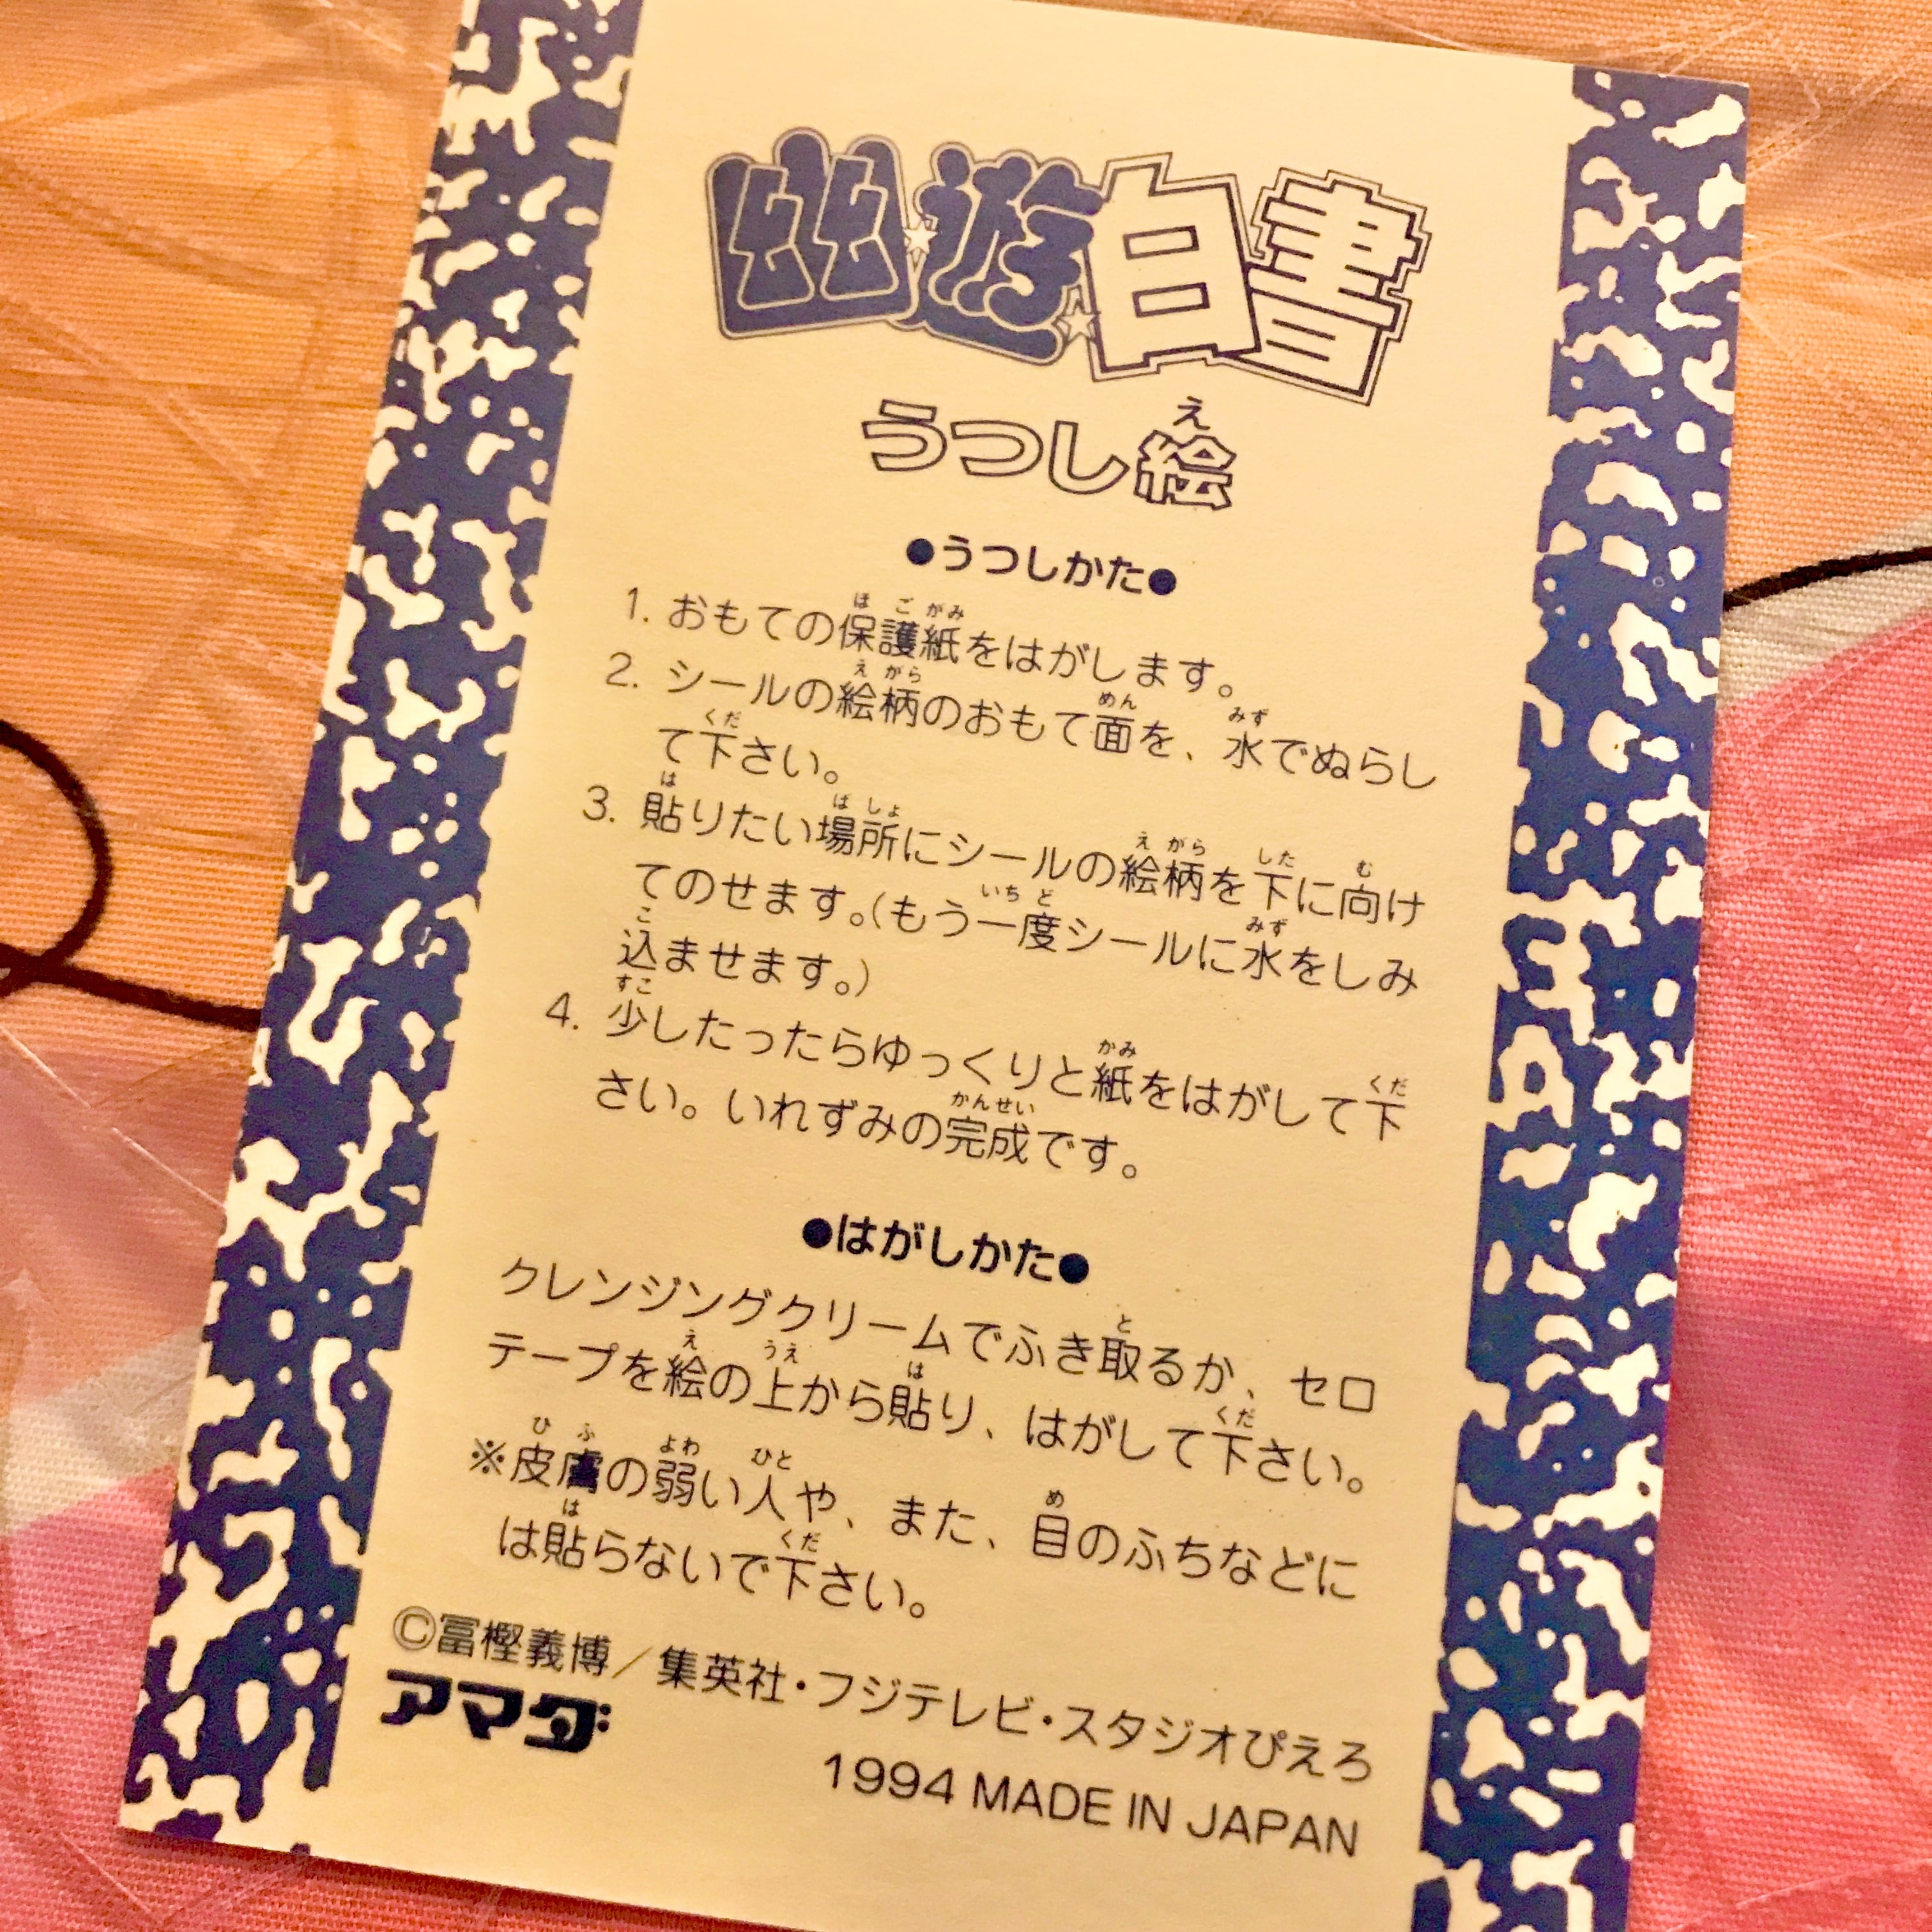 幽遊白書
うつし絵
●うつしかた●
1. おもての保護紙をはがします。
2. シールの絵柄のおもて面を、水でぬらし
て下さい。
3. 貼りたい場所にシールの絵柄を下に向け
てのせます。(もう一度シールに水をしみ
込ませます。)
4. 少したったらゆっくりと紙をはがして下
さい。いれずみの完成です。
●はがしかた●
クレンジングクリームでふき取るか、セロ
テープを絵の上から貼り、はがして下さい。
※皮膚の弱い人や、また、目のふちなどに
は貼らないで下さい。
©冨樫義博／集英社・フジテレビ・スタジオぴえろ
アマダ
1994 MADE IN JAPAN